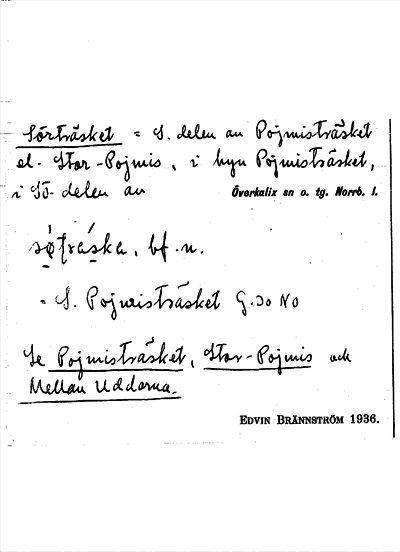 Sörträsket = S. delen av Pojmisträsket
el. Stor-Pojmis, i byn Pojmisträsket,
i SÖ. delen av Överkalix sn o. tg. Norrb. l.
bf. n.
= S. Pojmisträsket G. 30 NO
Se Pojmisträsket, Stor-Pojmis och
Mellan Uddarna.
EDVIN BRÄNNSTRÖM 1936.